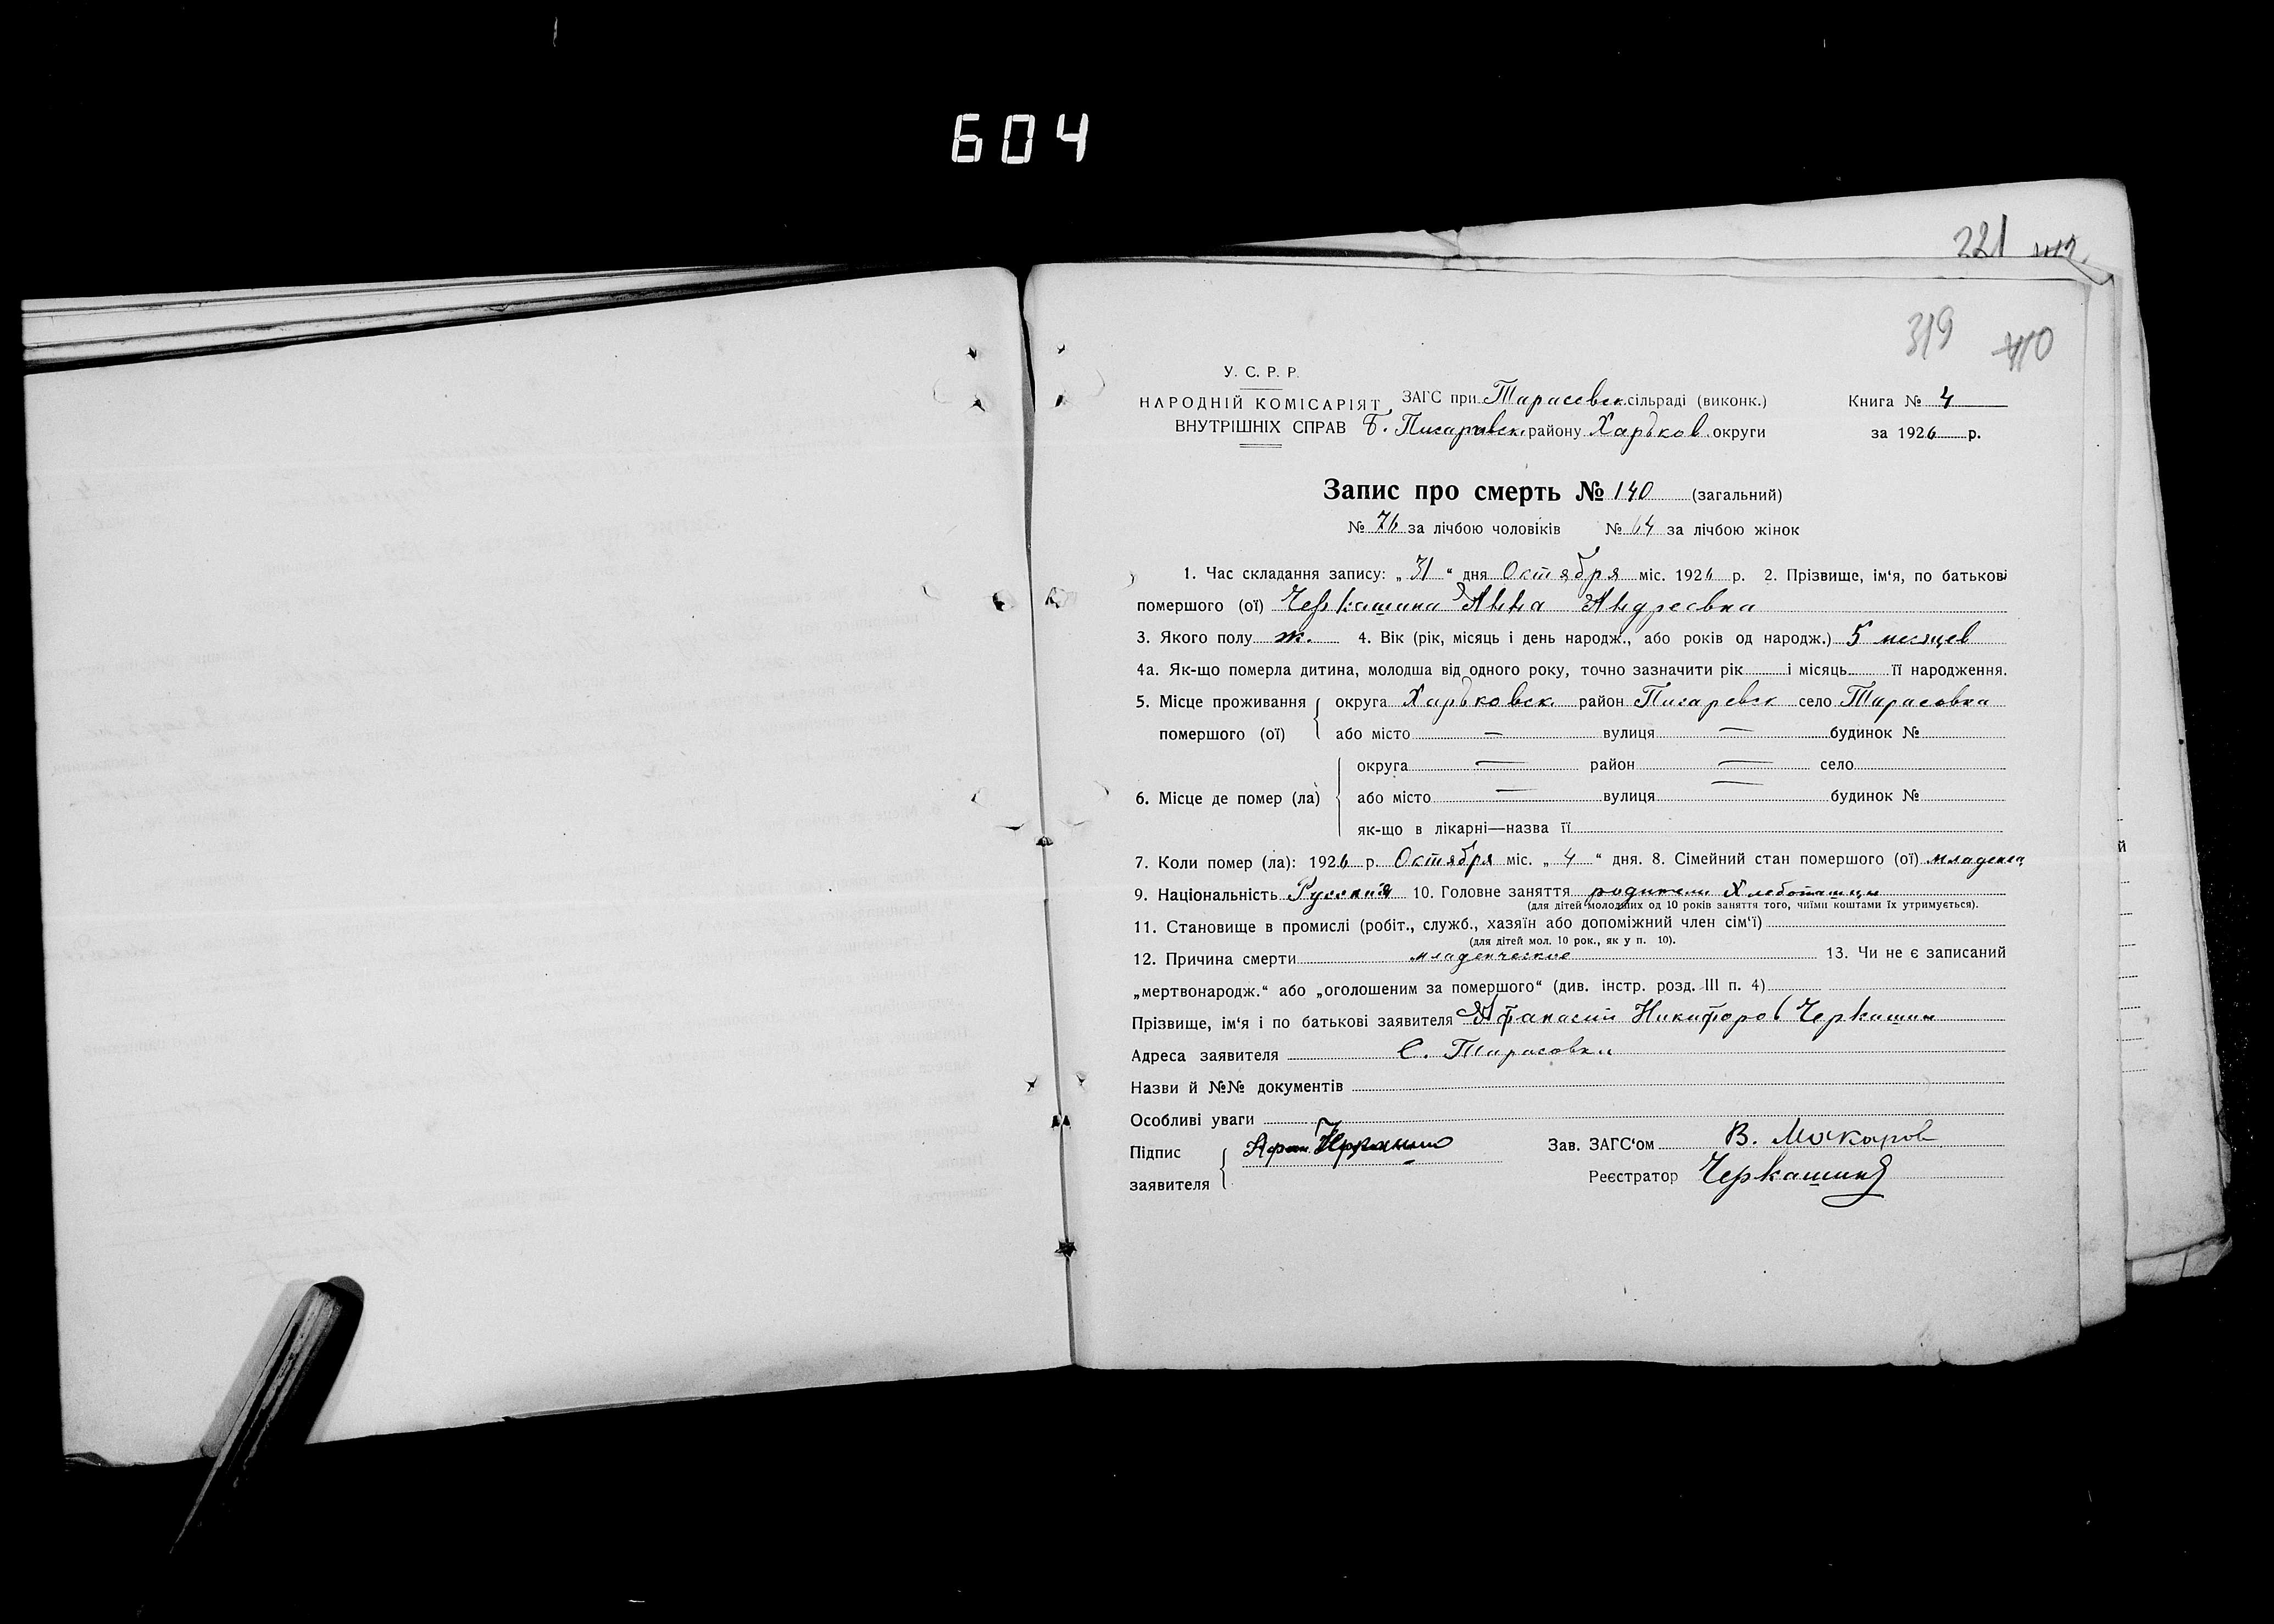 604
221
319 410
У. С. Р. Р.
НАРОДНІЙ КОМІСАРІЯТ ЗАГС при Тарасовск. сільраді (виконк.) Книга № 4
ВНУТРІШНІХ СПРАВ Б. Писаревск. району Харьков. округи за 1926 р.
Запис про смерть № 140 (загальний)
№ 76 за лічбою чоловіків № 64 за лічбою жінок
1. Час складання запису: „31“ дня Октября міс. 1926 р. 2. Прізвище, ім'я, по батькові
помершого (ої) Черкашина Анна Андреевна
3. Якого полу ж. 4. Вік (рік, місяць і день народж., або років од народж.) 5 месяцев
4а. Як-що померла дитина, молодша від одного року, точно зазначити рік і місяць її народження.
5. Місце проживання округа Харьковск. район Писаревск село Тарасовка
помершого (ої) або місто — вулиця — будинок №
округа — район — село
6. Місце де помер (ла) або місто — вулиця — будинок №
як-що в лікарні—назва її
7. Коли помер (ла): 1926 р. Октября міс. „4“ дня. 8. Сімейний стан помершого (ої) младенец
9. Національність Русская 10. Головне заняття родители Хлебопашцы
(для дітей молодших од 10 років заняття того, чиїми коштами їх утримується).
11. Становище в промислі (робіт., служб., хазяїн або допоміжний член сім'ї)
(для дітей мол. 10 рок., як у п. 10).
12. Причина смерти младенческие 13. Чи не є записаний
„мертвонародж.“ або „оголошеним за помершого“ (див. інстр. розд. III п. 4)
Прізвище, ім'я і по батькові заявителя Афанасий Никифоров Черкашин
Адреса заявителя С. Тарасовка
Назви й №№ документів
Особливі уваги
Підпис Зав. ЗАГС'ом В. Макаров
заявителя Реєстратор Черкашин